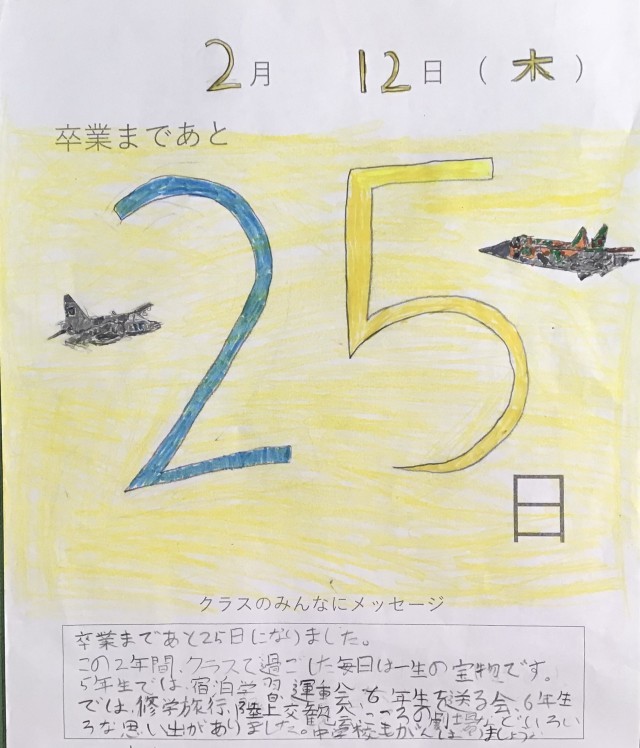 2月 12日（木）
卒業まであと
25
日
クラスのみんなにメッセージ
卒業まであと25日になりました。
この2年間、クラスで過ごした毎日は一生の宝物です。
5年生では、宿泊学習、運動会、6年生を送る会、6年生
では、修学旅行、陸上交歓会、こころの劇場などいろい
ろな思い出がありました。中学校もがんばりましょう。